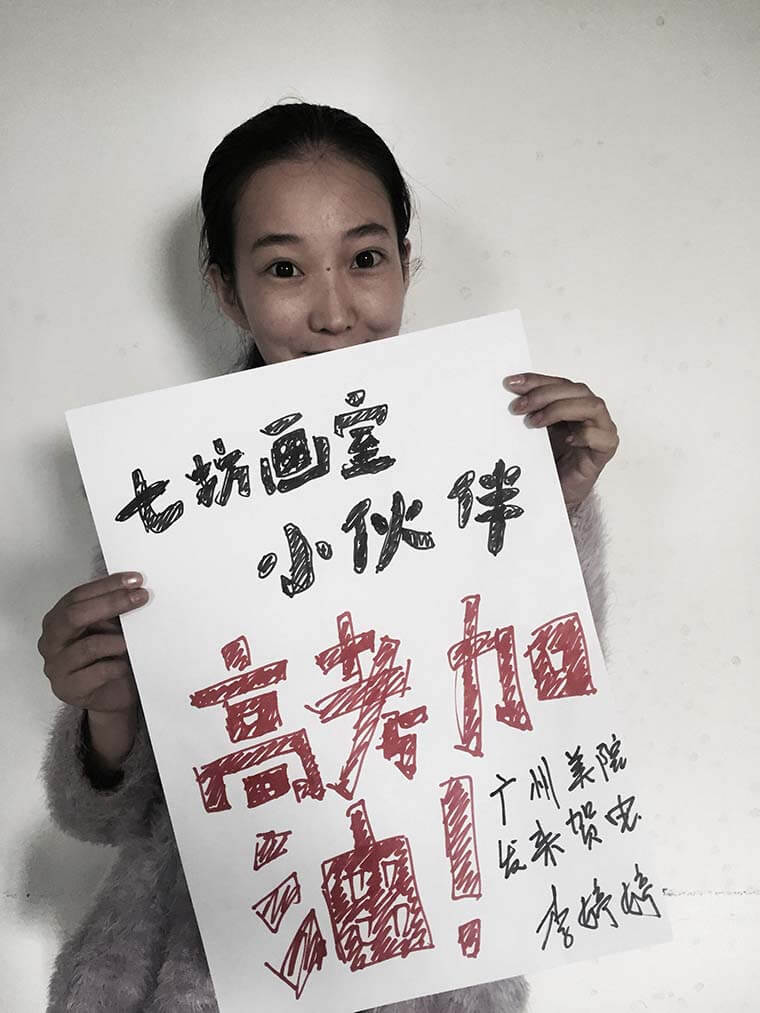 七坊画室
小伙伴
高考加
油！
广州美院
发来贺电
李婷婷